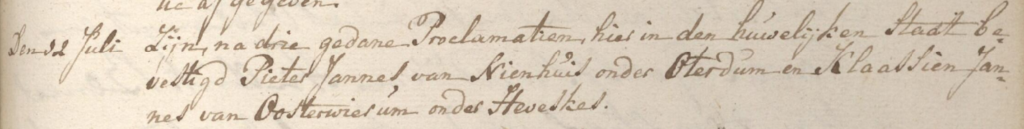 ve afgegeven.
Den 12 Juli Zijn, na drie gedane Proclamatien, hier in den huwelijken Staat be-
vestigd Pieter Jannes van Nienhuis onder Oterdum en Klaassien Jan-
nes van Oosterwiesum onder Heveskes.